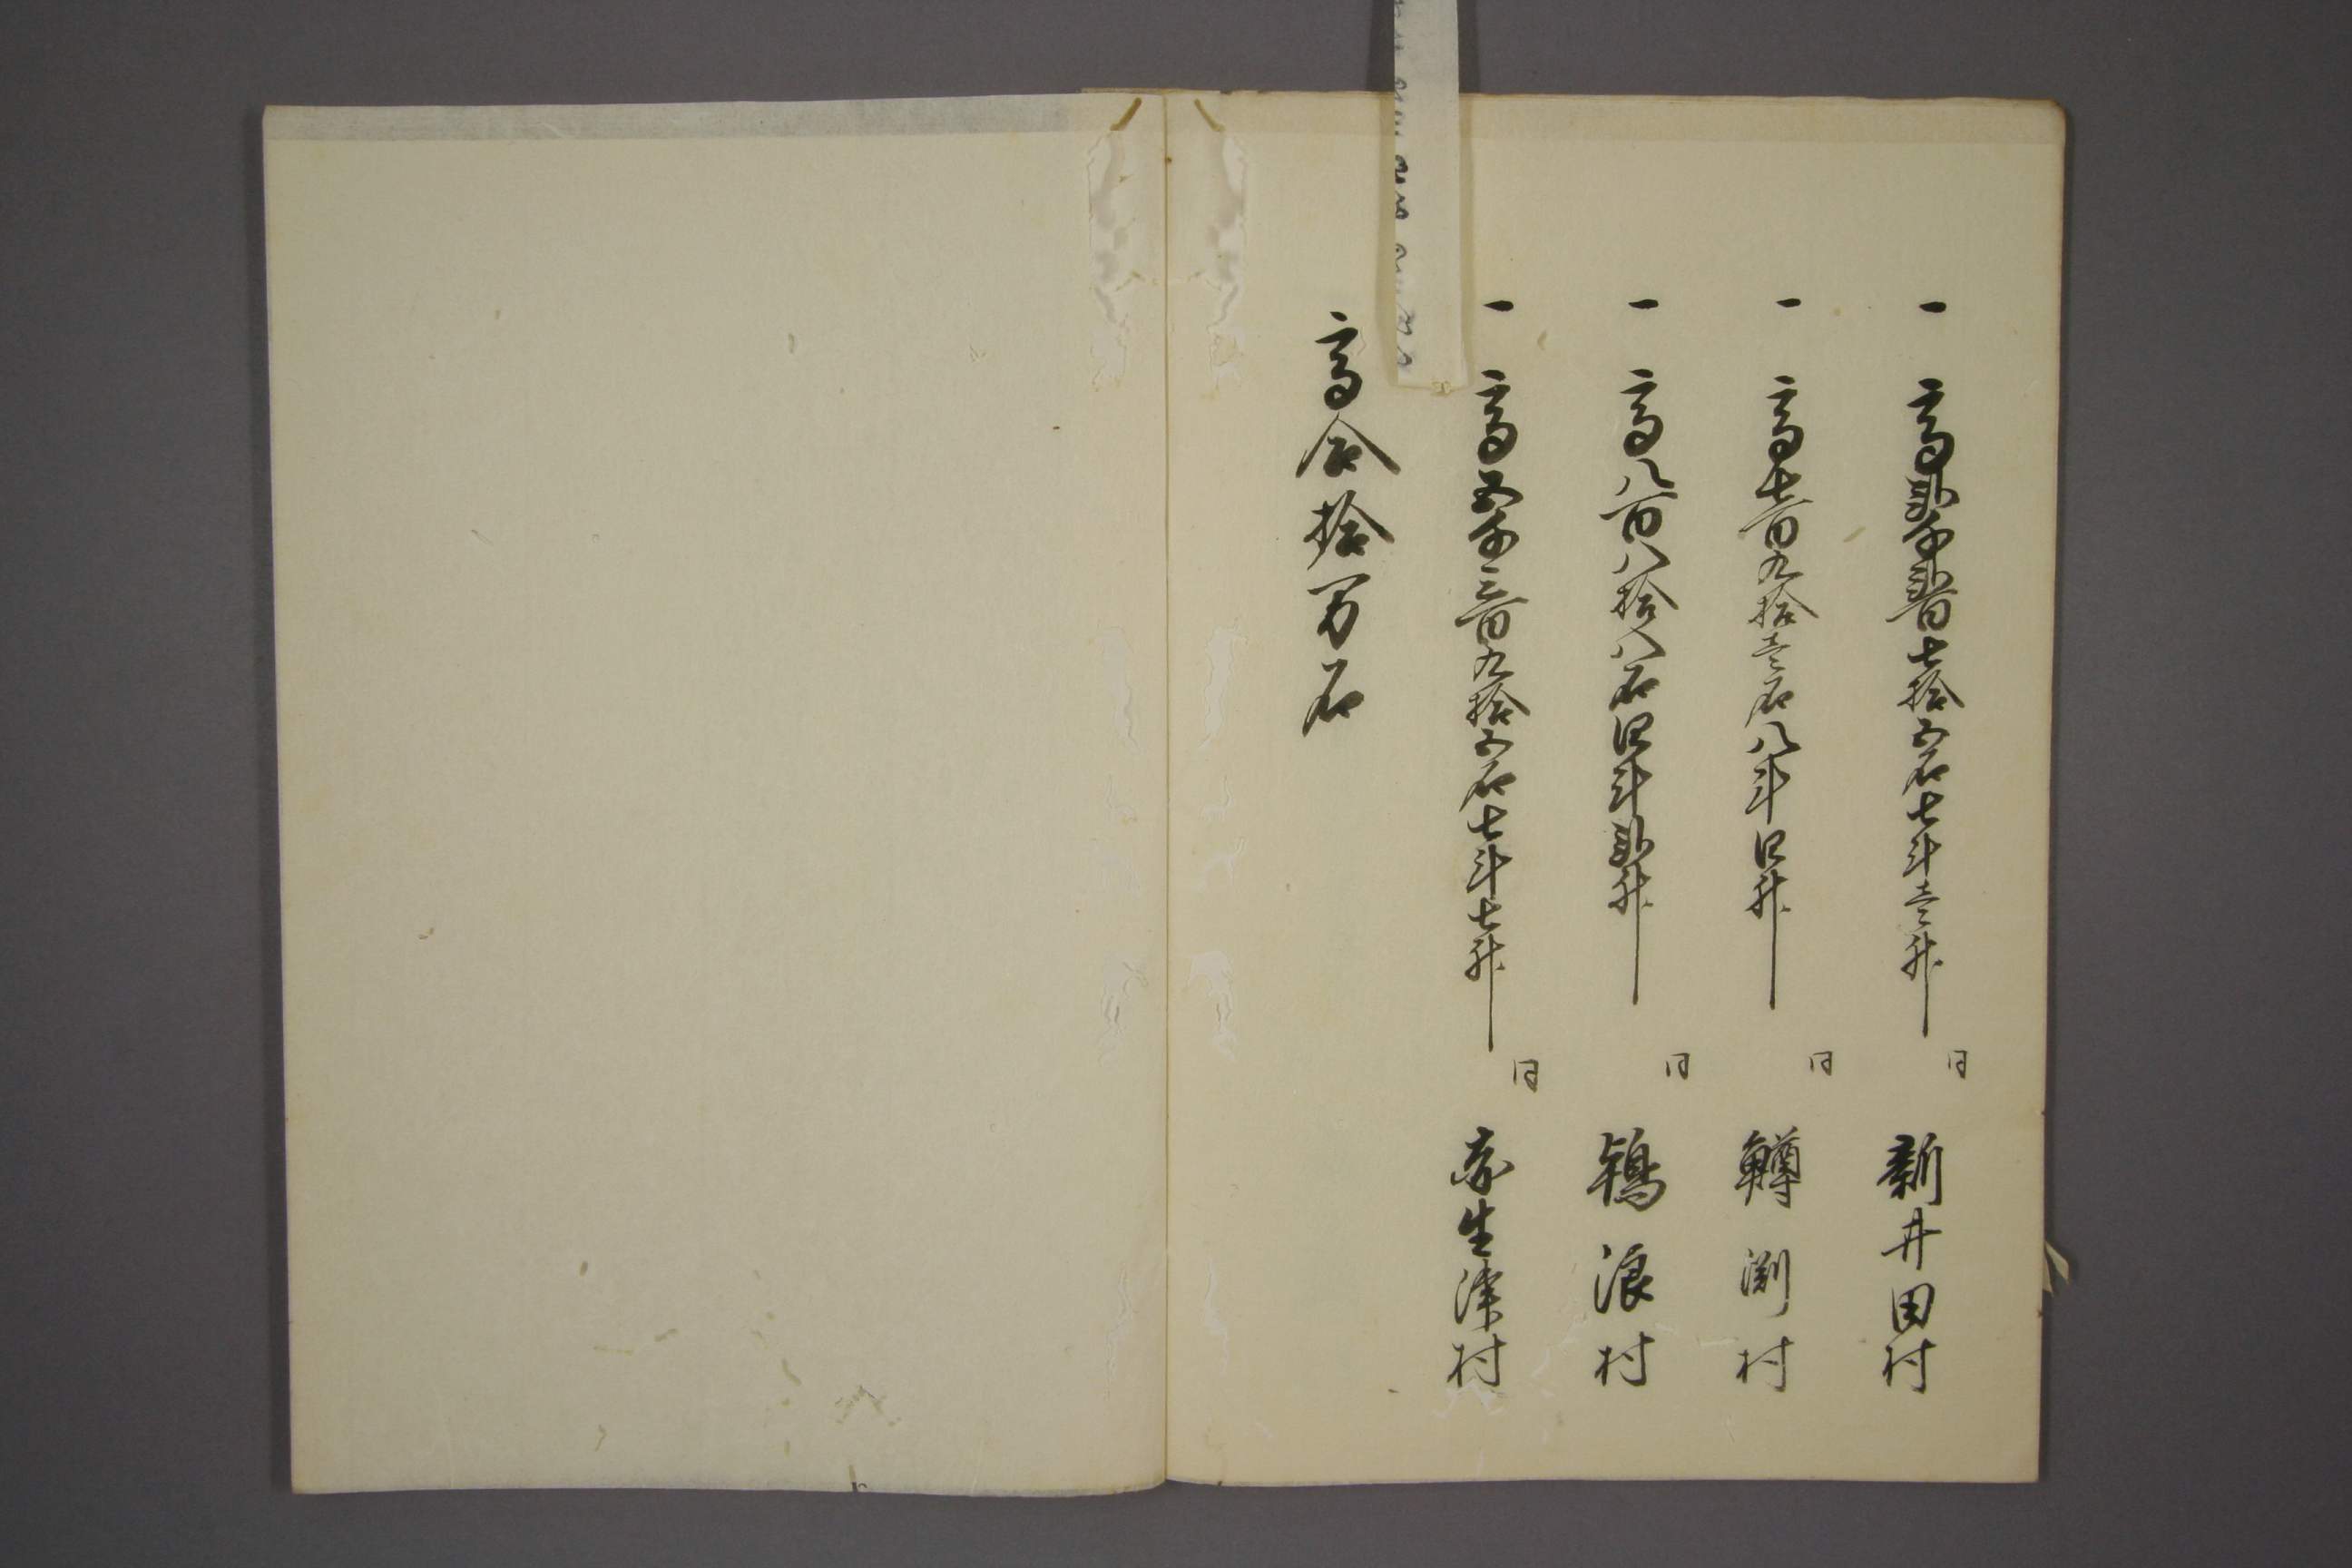 一 高弐千弐百七拾五石七斗壱升 同 新井田村
一 高七百九拾壱石八斗四升 同 鱒渕村
一 高八百八拾八石四斗弐升 同 鴇浪村
一 高五千三百九拾五石七斗七升 同 赤生津村
高合拾万石